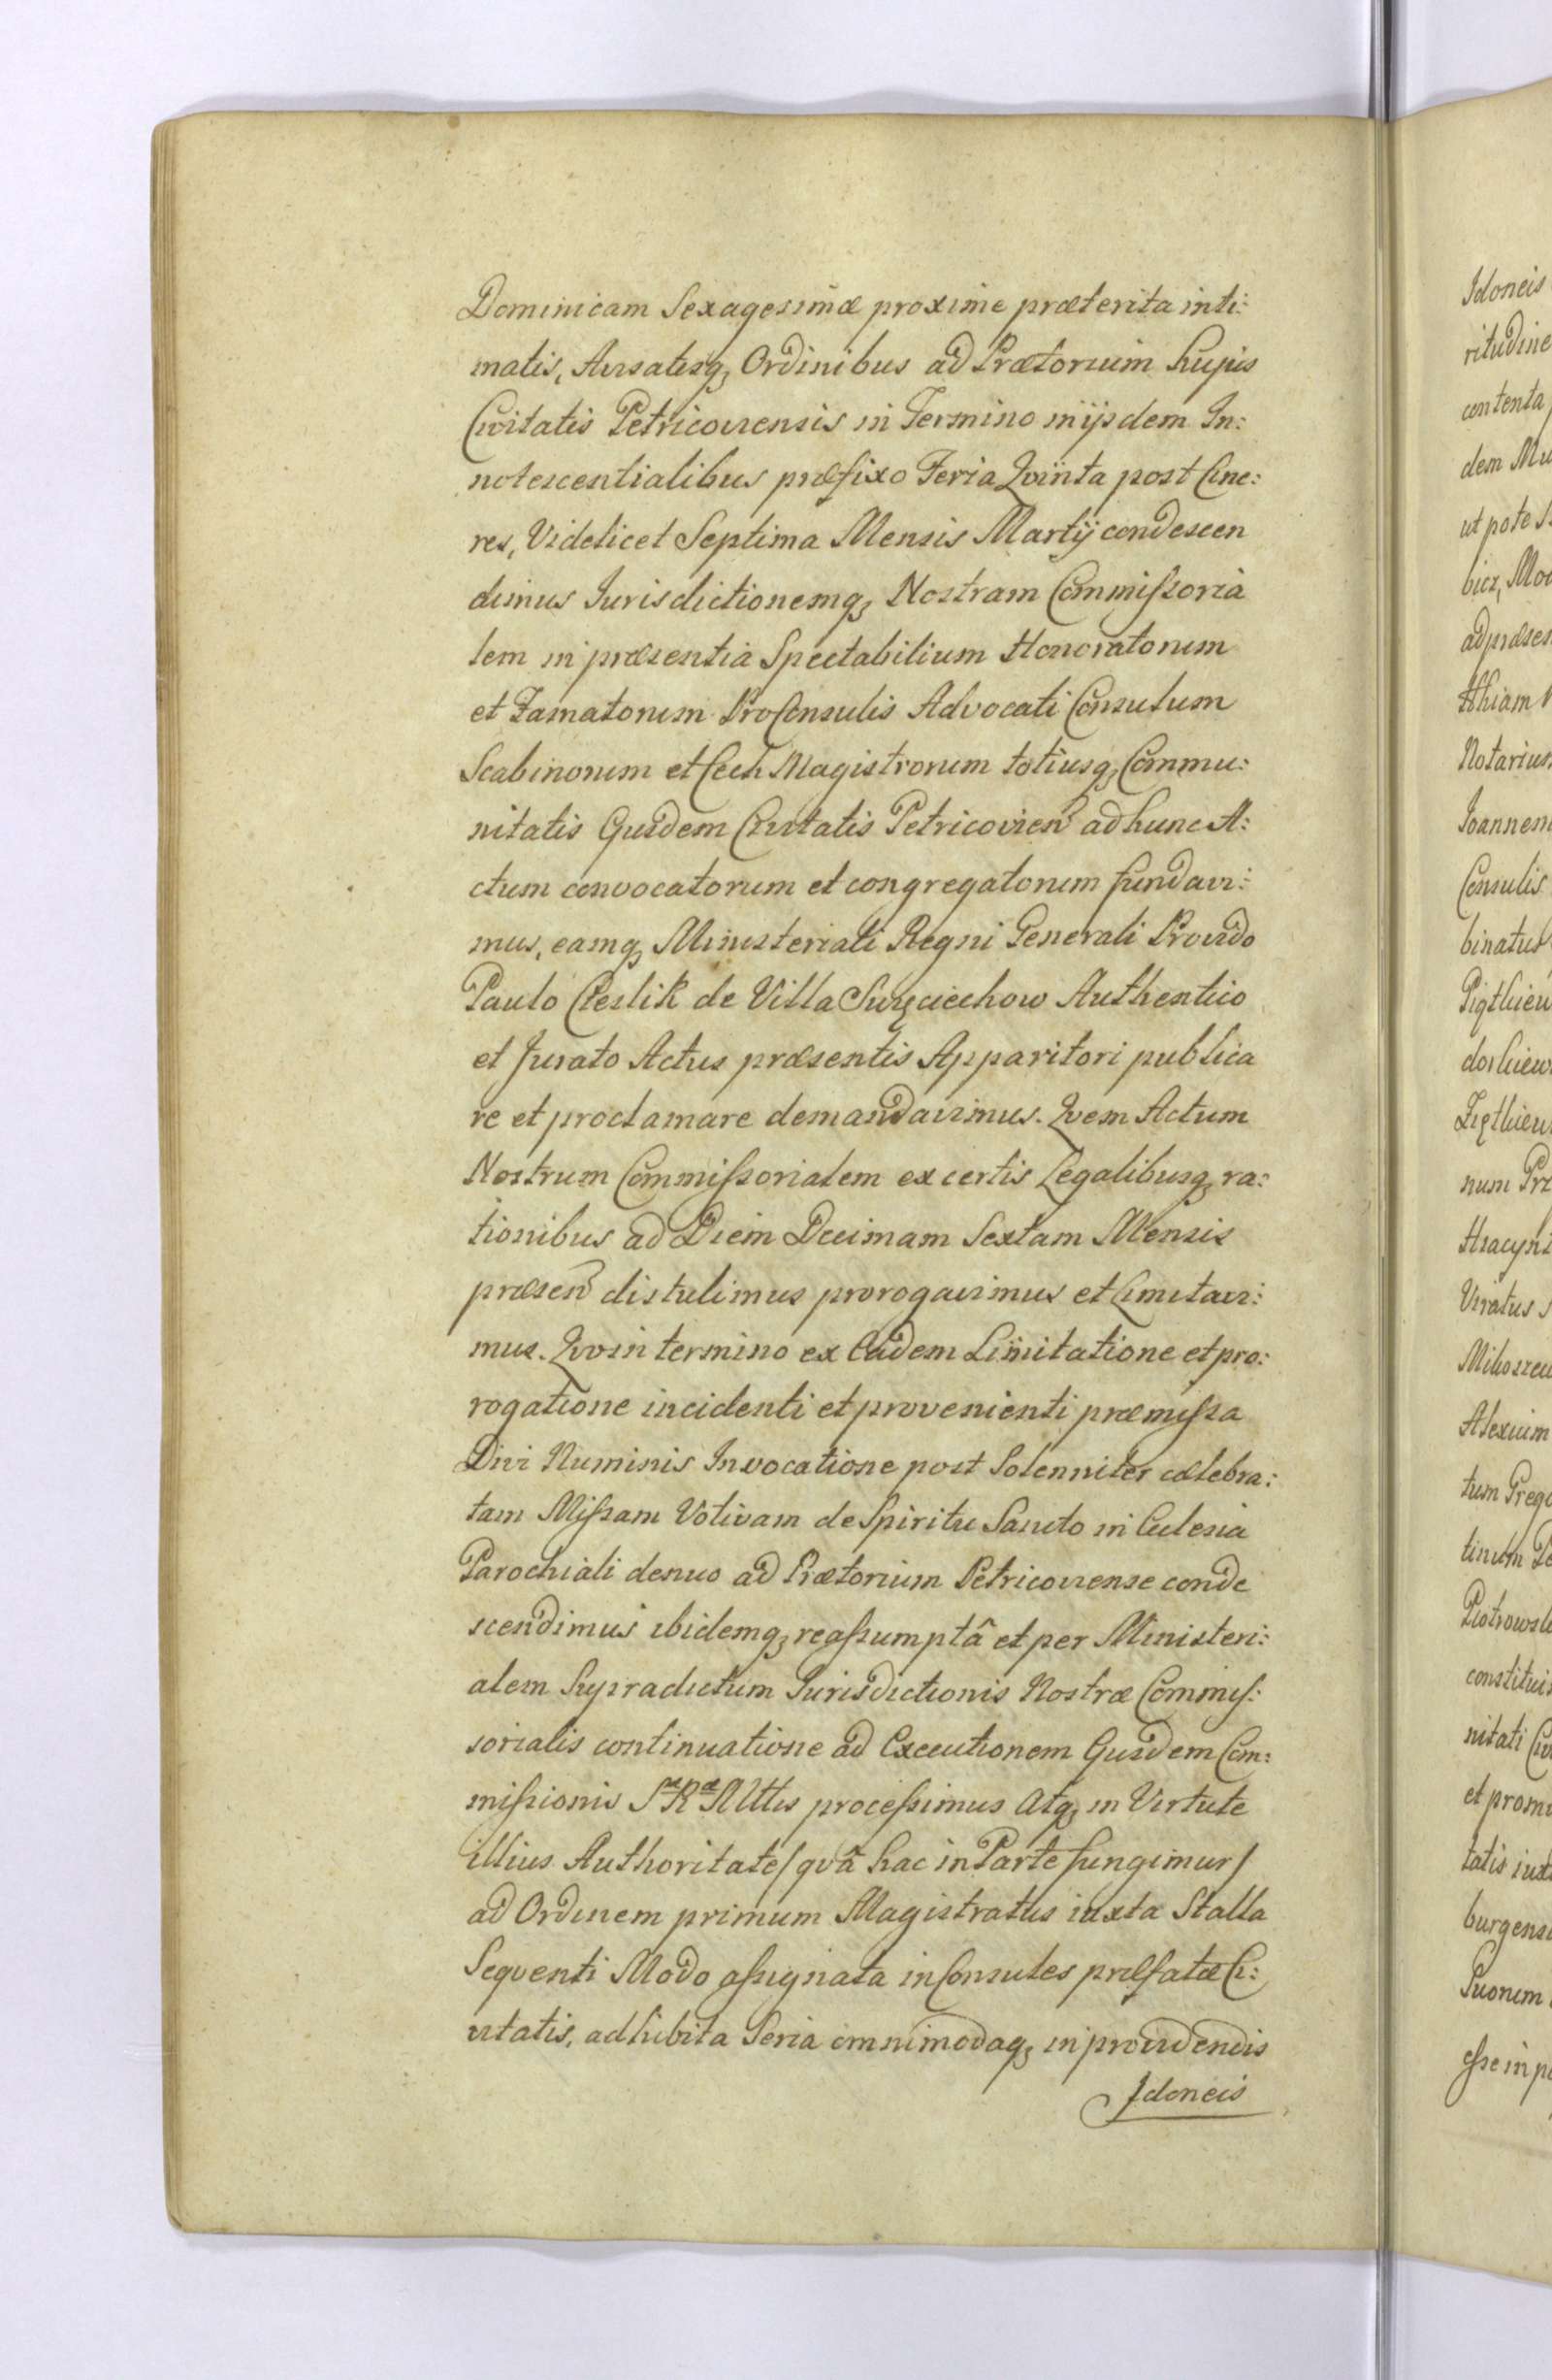 Dominicam Sexagesimæ proxime præterita inti:
matis, Avisatisq, Ordinibus ad Prætorium hujus
Civitatis Petricoviensis in Termino in ijsdem In:
notescentialibus præfixo Feria Qvinta post Cine:
res, Videlicet Septima Mensis Martij condescen
dimus Iurisdictionemq, Nostram Commissoria
lem in præsentia Spectabilium Honoratorum
et Famatorum ProConsulis Advocati Consulum
Scabinorum et Cech Magistrorum totiusq, Commu:
nitatis Ejusdem Civitatis Petricovien ad hunc A:
ctum convocatorum et congregatorum fundavi:
mus, eamq, Ministeriali Regni Generali Provido
Paulo Cieslik de Villa Authentico
et Jurato Actus præsentis Apparitori publica
re et proclamare demandavimus. Qvem Actum
Nostrum Commissorialem ex certis Legalibusq, ra:
tionibus ad Diem Decimam Sextam Mensis
præsen distulimus prorogavimus et Limitavi:
mus. Qvo in termino ex Eadem Limitatione et pro:
rogatione incidenti et provenienti præmissa
Divi Numinis Invocatione post Solenniter cælebra:
tam Missam Votivam de Spiritu Sancto in Eclesia
Parochiali denuo ad Prætorium Petricoviense conde
scendimus ibidemq, reassumptâ et per Ministeri:
alem Supradictum Iurisdictionis Nostræ Commis:
sorialis continuatione ad Executionem Ejusdem Com:
missionis Sæ Ræ Mttis processimus Atq, in Virtute
illius Authoritate / qvâ hac in Parte fungimur /
ad Ordinem primum Magistratus iuxta Stalla
Seqventi Modo assignata in Consules præfatæ Ci:
vitatis, adhibita Seria omnimodaq, in providendis
Idoneis
Idoneis
ritudine
contenta
dem
ut pote
ad præsen
Notarium
Ioannem
Consulis
binatus
num
Hyacynt
Viratus
Alexium
tum Grego
tinum
Piotrowsk
constitui
nitati Civ
et prom
tatis iuxt
burgens
Suorum
esse in